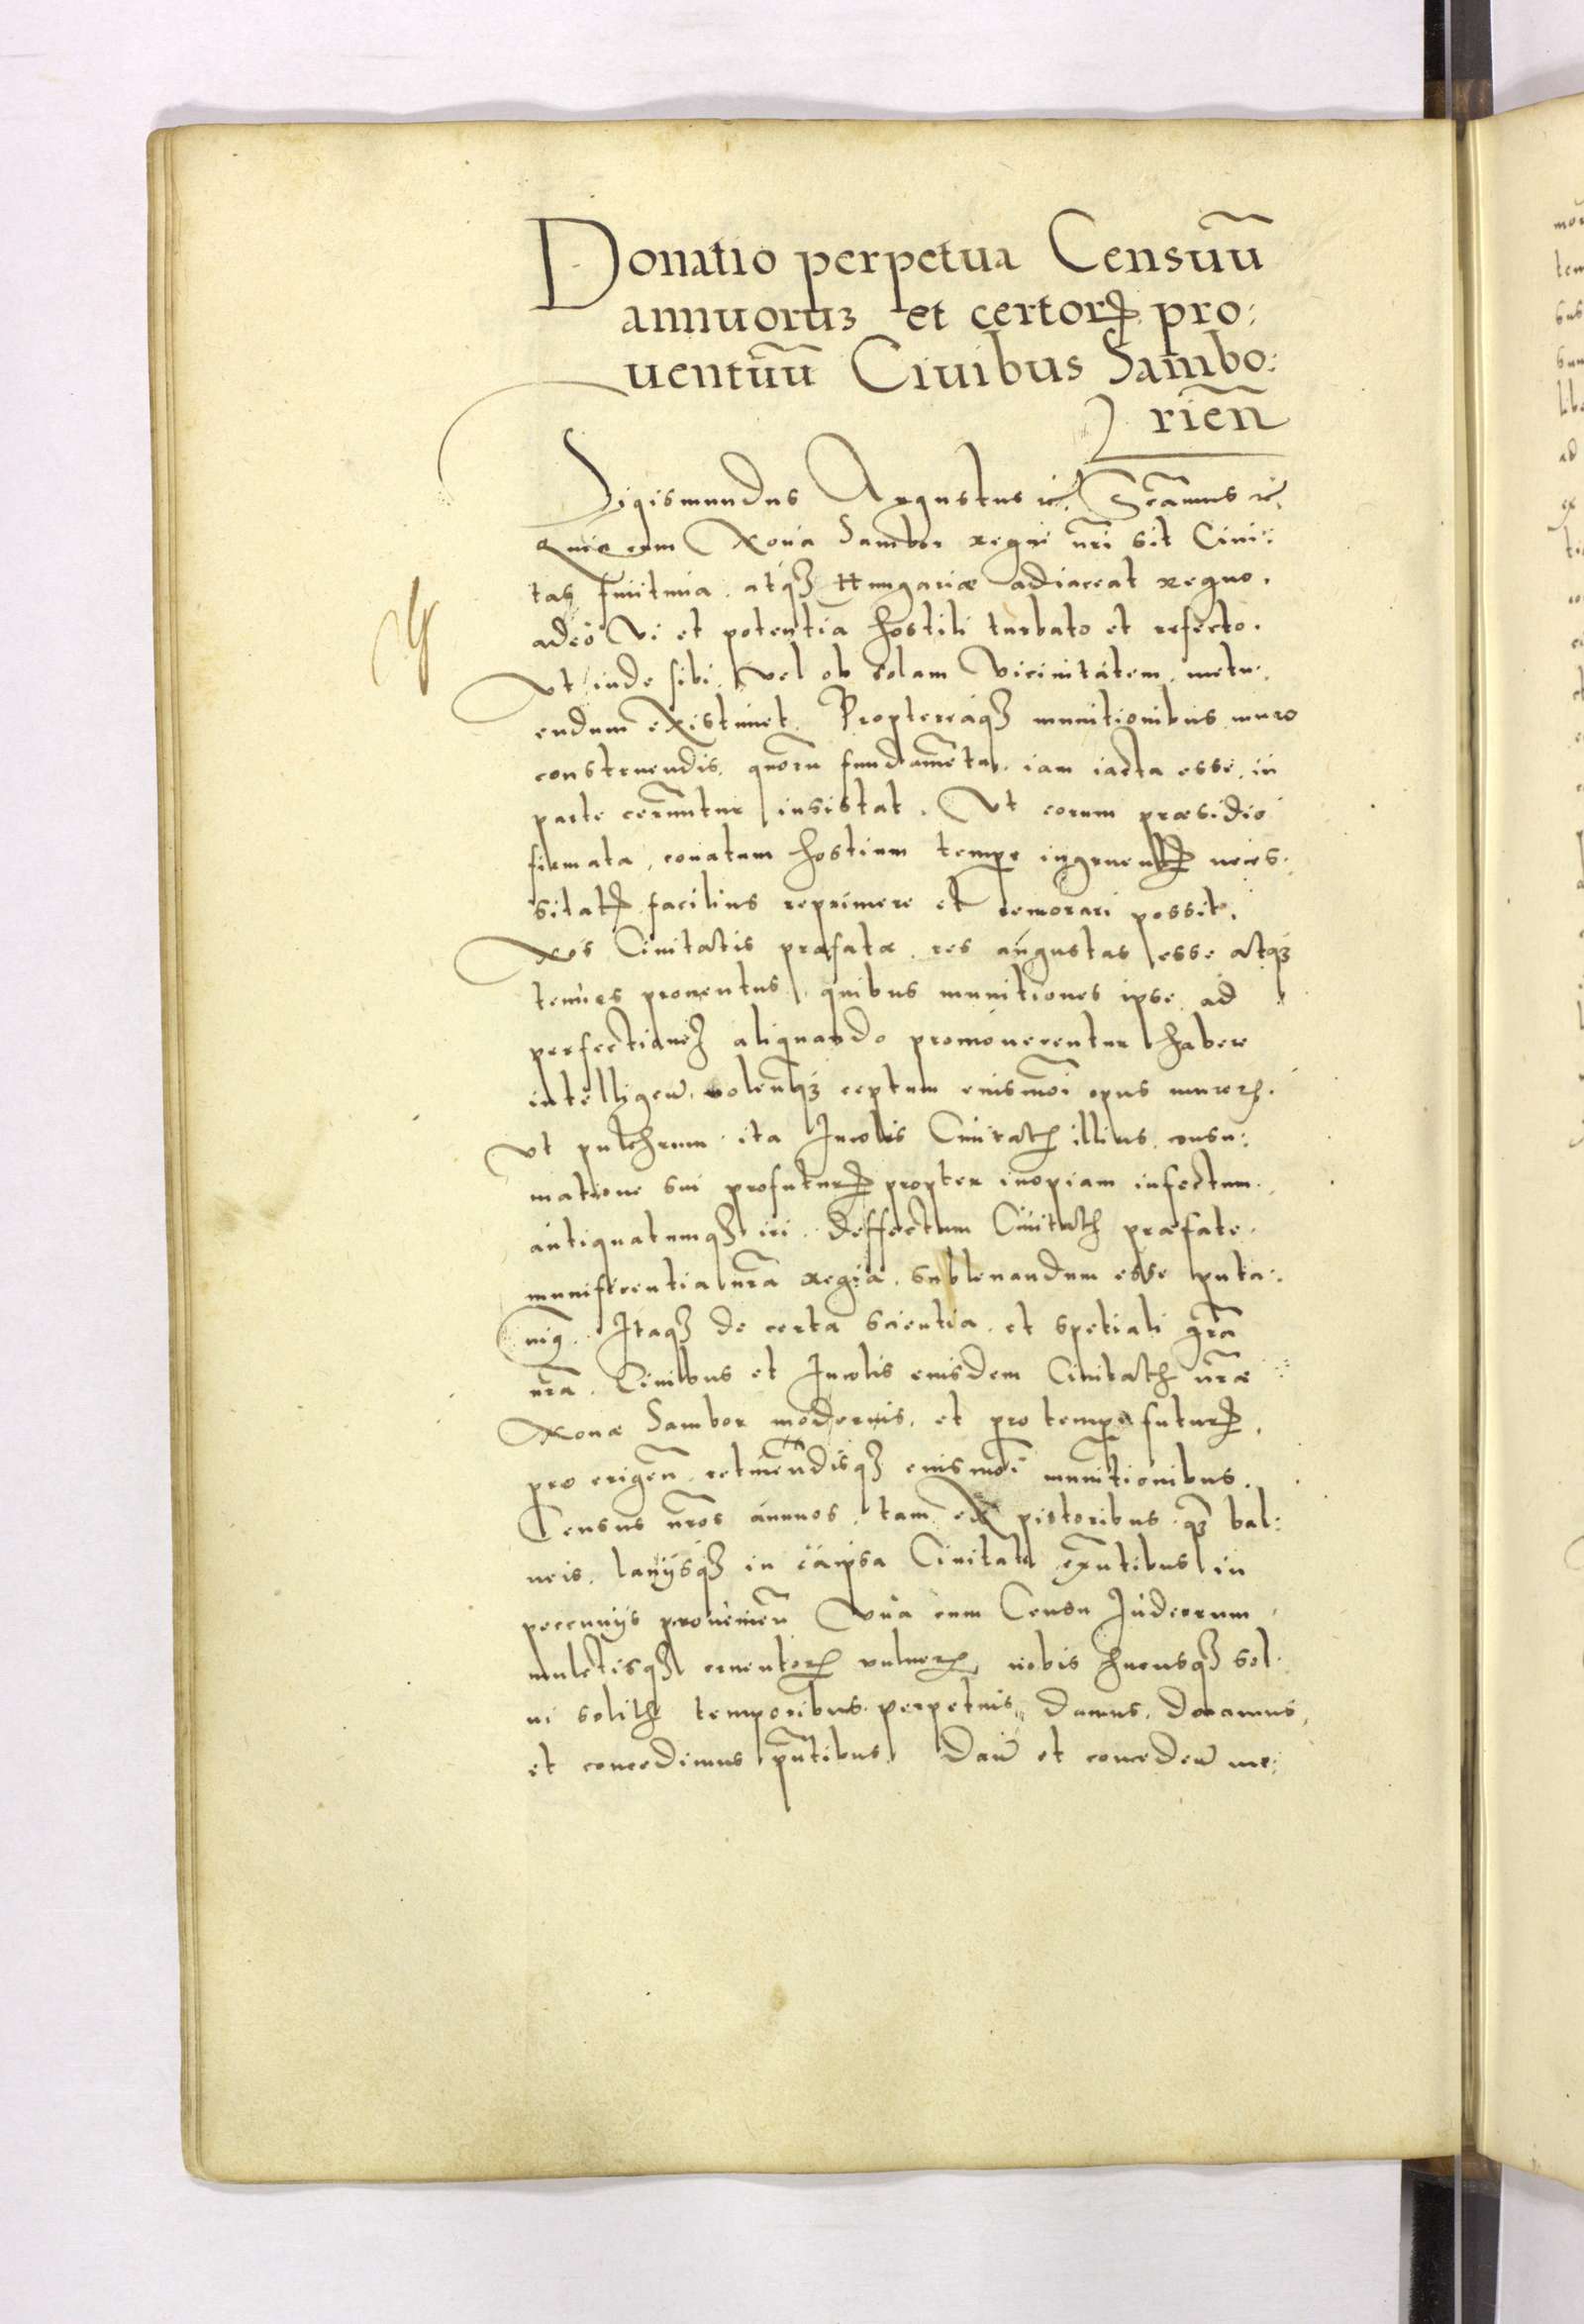 Donatio perpetua Censuū
annuoruꝫ et certorꝝ pro:
uentuū Ciuibus Sambo:
rieñ
Sigismundus Augustus ꝛc̃. Sc̃amus ꝛc̃
Quia cum Noua Sambor regni nr̃i sit Ciui:
tas finitima. atqꝫ Hungariæ adiaceat regno.
adeo vi et potentia hostili turbato et refecto.
Vt inde sibi, vel ob solam vicinitatem, metu,
endum existimet. Proptereaqꝫ munitionibus muro
construendis, quorū fundamēta iam iacta esse, in
parte cernuntur insistat. Vt eorum præsidio
firmata, conatum hostium tempe ingruentꝭ neces,
sitatꝭ facilius reprimere et remorari possit.
Nos Ciuitatis præfatæ res angustas esse atqꝫ
tenues prouentus, quibus munitiones ipse ad
perfectioneꝫ aliquando promouerentur habere
intelligeñ. volentesqꝫ ceptum eiusmōi opus murorꝝ.
Vt pulchrum ita Incolis Ciuitatꝭ illius, consu:
matione sui profuturꝭ propter inopiam infectum.
antiquatumqꝫ iri. deffectum Ciuitatꝭ præfate.
munificentia nr̃a regia, subleuandum esse puta:
uimꝰ. Itaqꝫ de certa scientia, et spetiali gr̃a
nr̃a. Ciuibus et Incolis eiusdem Ciuitatꝭ nr̃æ
Nouæ Sambor modernis, et pro tempe futurꝭ,
pro erigeñ. retinēndisqꝫ eiusmōi munitionibus.
Census nr̃os annuos, tam ex pistoribus qꝫ bal:
neis, lanijsqꝫ in ea ipsa Ciuitate exñtibus in
peccunijs proueniēn Vna cum Censu Iudeorum,
mulctisqꝫ cruentorꝝ vulnerꝝ, nobis hucusqꝫ sol,
ui solitꝭ temporibus perpetuis, damus, donamus,
et concedimus pñtibus. Dañ et concedeñ me: